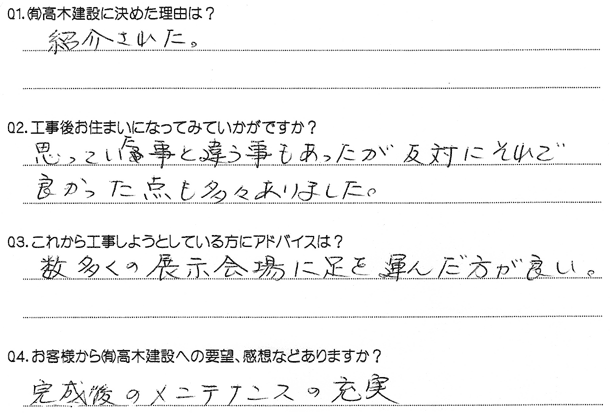 Q1.㈲高木建設に決めた理由は?
紹介された。
Q2.工事後お住まいになってみていかがですか?
思ってい事と違う事もあったが反対にそれで
良かった点も多々ありました。
Q3.これから工事しようとしている方にアドバイスは?
数多くの展示会場に足を運んだ方が良い。
Q4.お客様から㈲高木建設への要望、感想などありますか?
完成後のメニテナンスの充実